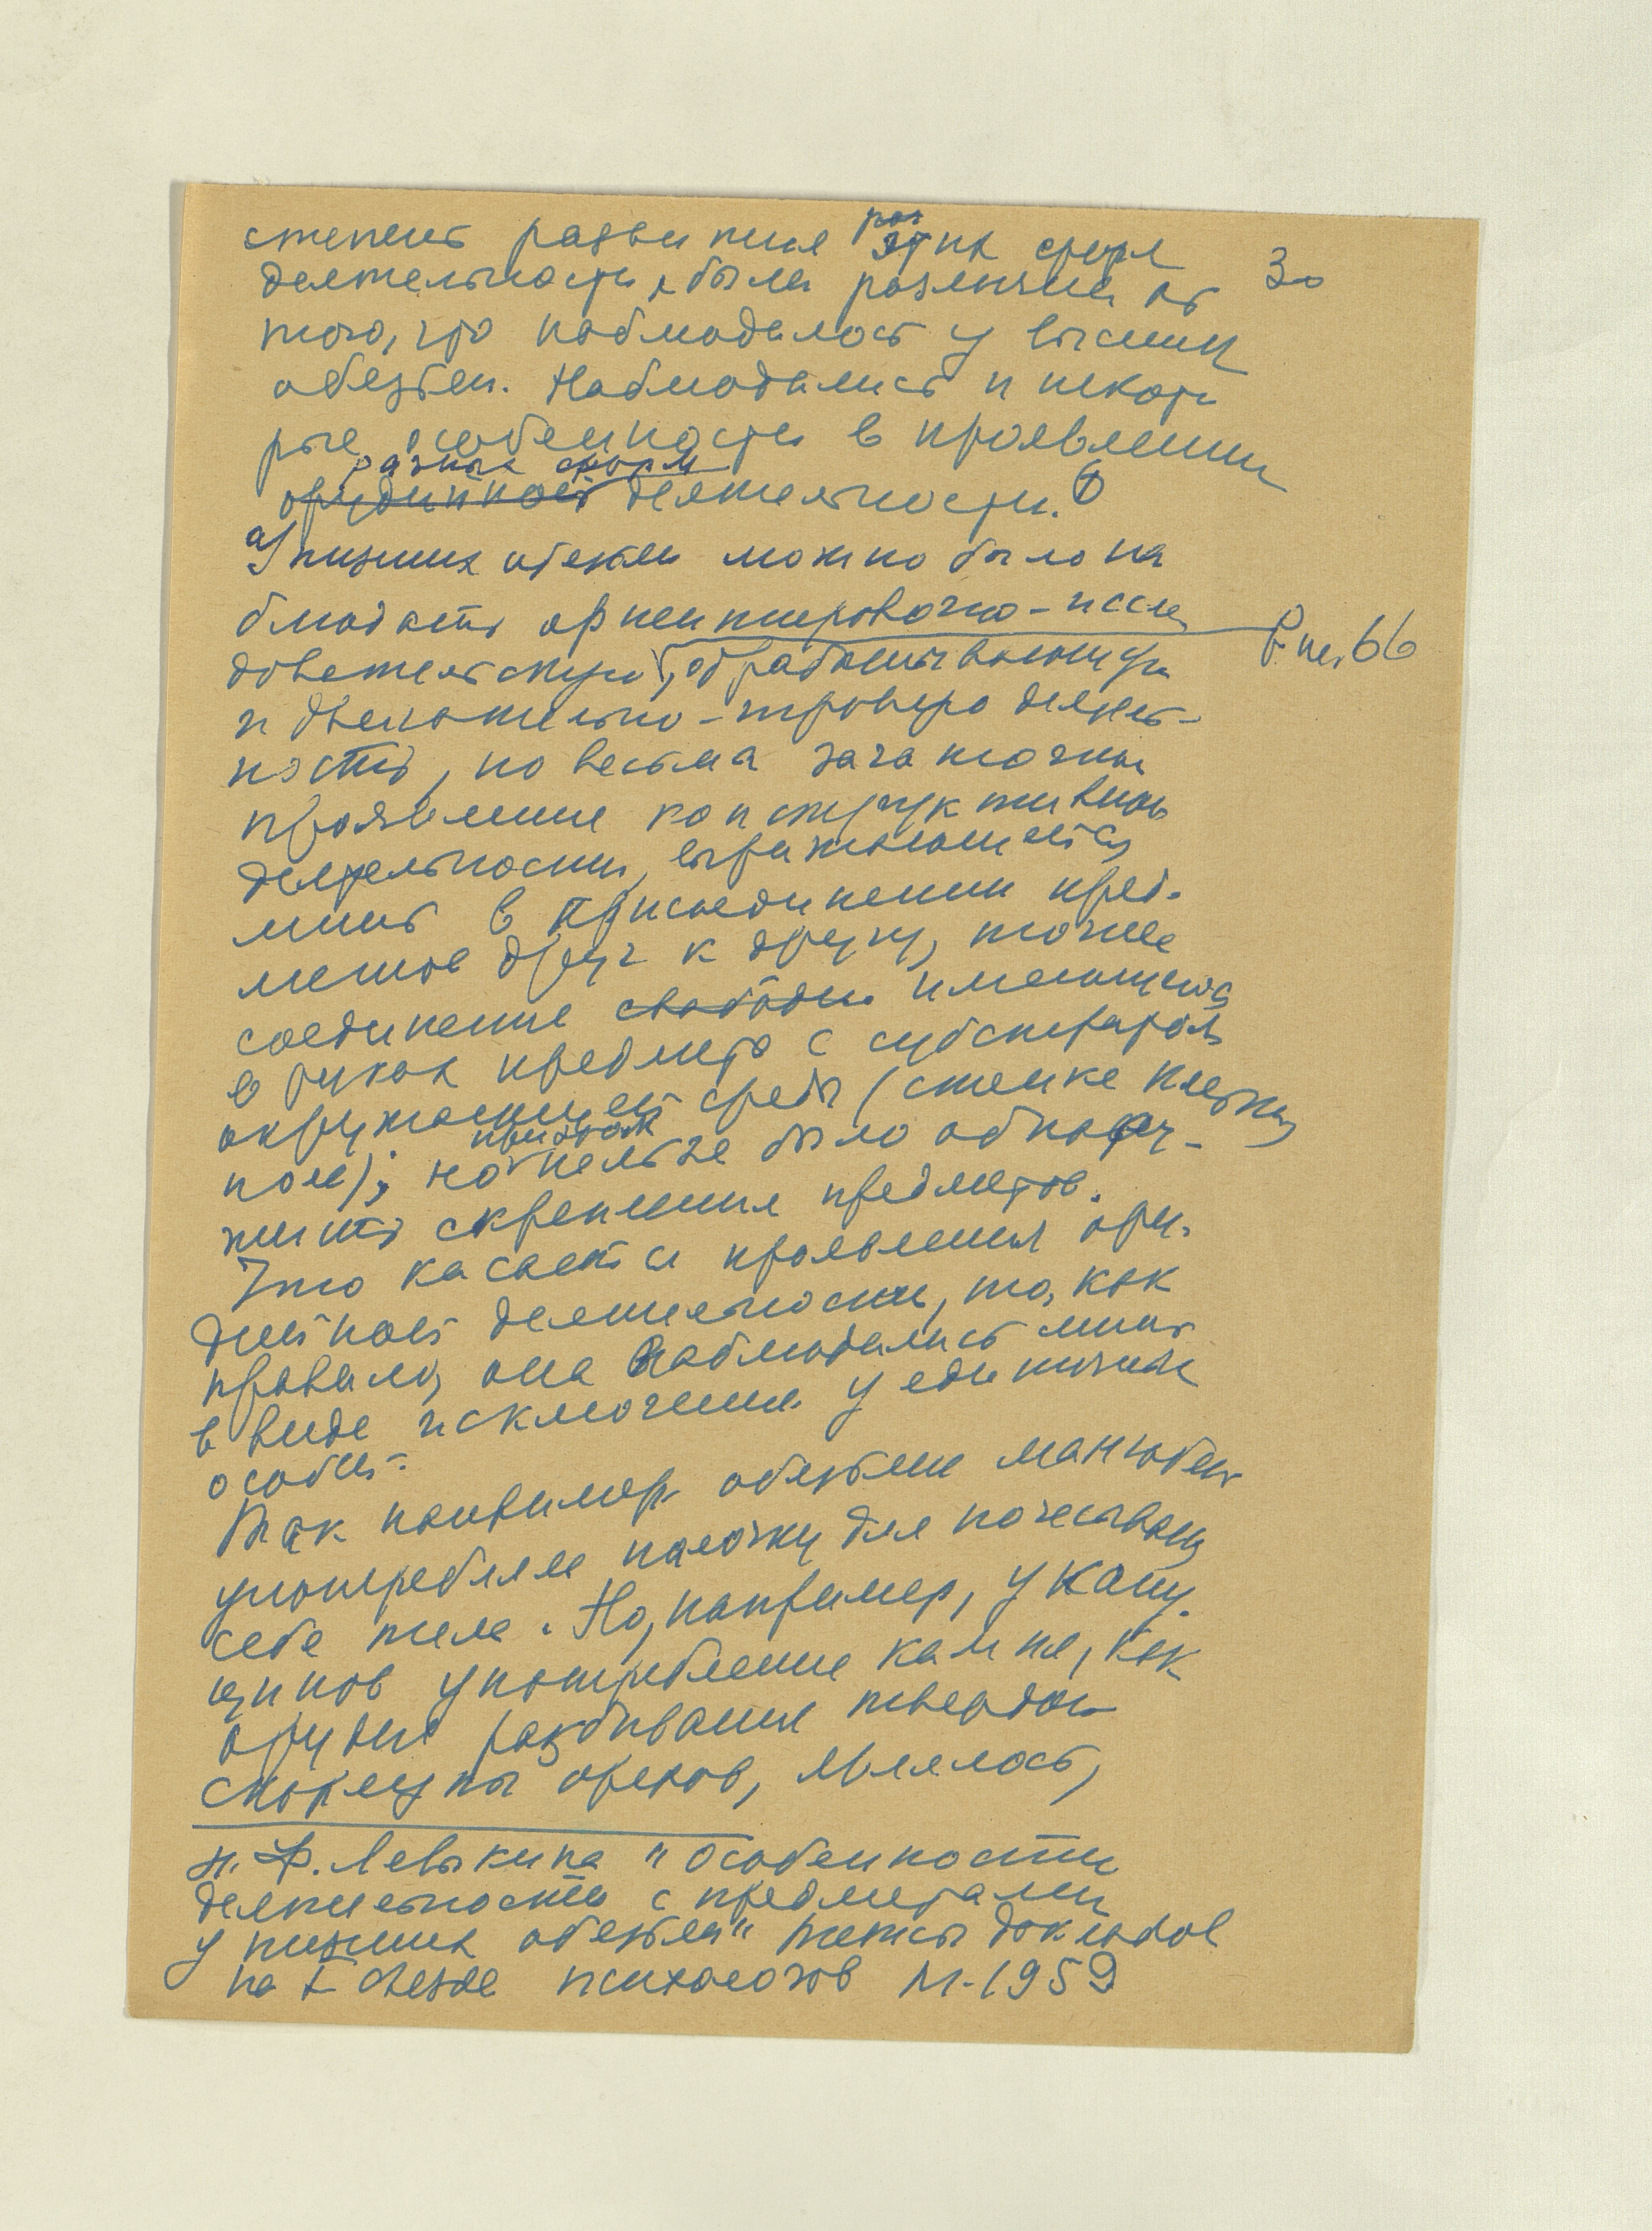 30
степень развития этих сфер
деятельности, были различны от
того, что наблюдалось у высших
обезьян. Наблюдались и некото
рые особенности в проявлении
разных форм
орудийной деятельности.
У низших обезьян можно было на
блюдать ориентировочно-иссле
довательскую, обрабатывающую
и двигательно-игровую деятель-
ность, но весьма зачаточны
проявление конструктивной
деятельности, выражающейся
лишь в присоединении пред-
метов друг к другу, также
соединение свободн. имеющегося
в руках предмета с субстратом
окружающей среды (стенке клетки,
пола); но нельзя было обнару-
жить скрепления предметов.
Что касается проявления ору-
дийной деятельности, то, как
правило, она наблюдались лишь
в виде исключения у единичных
особей.
Так например обезьяны мангобеи
употребляли палочку для почесывания
себе тела. Но, например, у капу-
цинов употребление камня, как
орудия разбивания твердой
скорлупы орехов, являлось,
Н. Ф. Левыкина "Особенности
деятельности с предметами
у низших обезьян" Тезисы докладов
на I съезде психологов М-1959